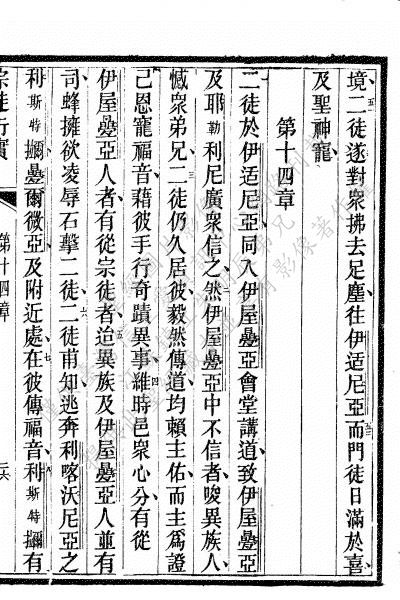 境二徒遂對衆拂去足塵往伊适尼亞而門徒日滿於喜
及聖神寵
第十四章
二徒於伊适尼亞同入伊屋疊亞會堂講道致伊屋疊亞
及耶勒利尼廣衆信之然伊屋疊亞中不信者唆異族人
憾衆弟兄二徒仍久居彼毅然傳道均賴主佑而主爲證
己恩寵福音藉彼手行奇蹟異事維時邑衆心分有從
伊屋疊亞人者有從宗徒者迨異族及伊屋疊亞人並有
司蜂擁欲凌辱石擊二徒二徒甫知逃奔利喀沃尼亞之
利斯特攦疊爾微亞及附近處在彼傳福音利斯特攦有
宗徒行實
第十四章